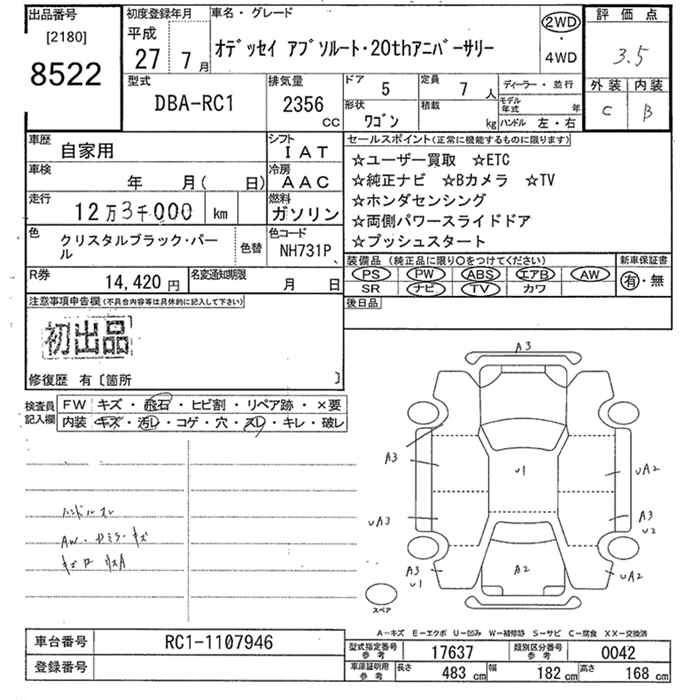 出品番号
[2180]
8522
初度登録年月
平成
27 7月
車名・グレード
オデッセイ アブソルート・20thアニバーサリー
2WD
・
4WD
評価点
3.5
外装 内装
C B
型式
DBA-RC1
排気量
2356
CC
ドア 5
定員 7 人
形状
ワゴン
積載 kg
ディーラー・並行
モデル年式 年
ハンドル 左・右
車歴 自家用
シフト
IAT
車検 年 月( 日)
冷房
AAC
走行 12万3千000 km
燃料
ガソリン
色 クリスタルブラック・パール
色替
色コード
NH731P
R券 14,420円
名変通知期限 月 日
セールスポイント(正常に機能するものに限ります)
☆ユーザー買取 ☆ETC
☆純正ナビ ☆Bカメラ ☆TV
☆ホンダセンシング
☆両側パワースライドドア
☆プッシュスタート
装備品(純正品に限り○をつけてください)
PS PW ABS エアB AW
SR ナビ TV カワ
新車保証書
有・無
後日品
注意事項申告欄(不具合内容等は具体的に記入して下さい)
初出品
修復歴 有〔箇所 〕
検査員記入欄
FW キズ・飛石・ヒビ割・リペア跡・×要
内装 キズ・汚レ・コゲ・穴・スレ・キレ・破レ
ハンドルスレ
AW・ドミラーキズ
A3
A3
U1
UA2
UA3
A3
U2
A3
U1
A2
UA2
A3
スペア
A-キズ E-エクボ U-凹み W-補修跡 S-サビ C-腐食 XX-交換済
車台番号 RC1-1107946
登録番号
型式指定番号参考 17637
類別区分番号参考 0042
車庫証明用参考 長さ 483 cm 幅 182 cm 高さ 168 cm